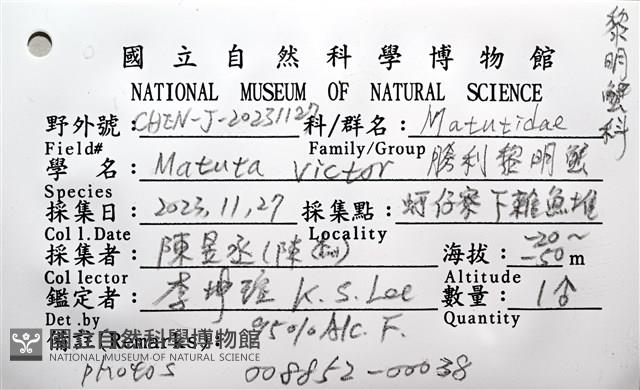 國立自然科學博物館
NATIONAL MUSEUM OF NATURAL SCIENCE
黎明蟹科
野外號：CHEN-J-20231127 科/群名：Matutidae
Field# Family/Group
學名：Matuta victor 勝利黎明蟹
Species
採集日：2023,11,27 採集點：蚵仔寮下雜魚堆
Coll.Date Locality
採集者：陳昱丞(陳 海拔：-20~-50m
Collector Altitude
鑑定者：李坤瑄 K.S.Lee 數量：1♂
Det.by Quantity
備註(Remarks)：95% Alc. F.
國立自然科學博物館
NATIONAL MUSEUM OF NATURAL SCIENCE
photos 008852-00038